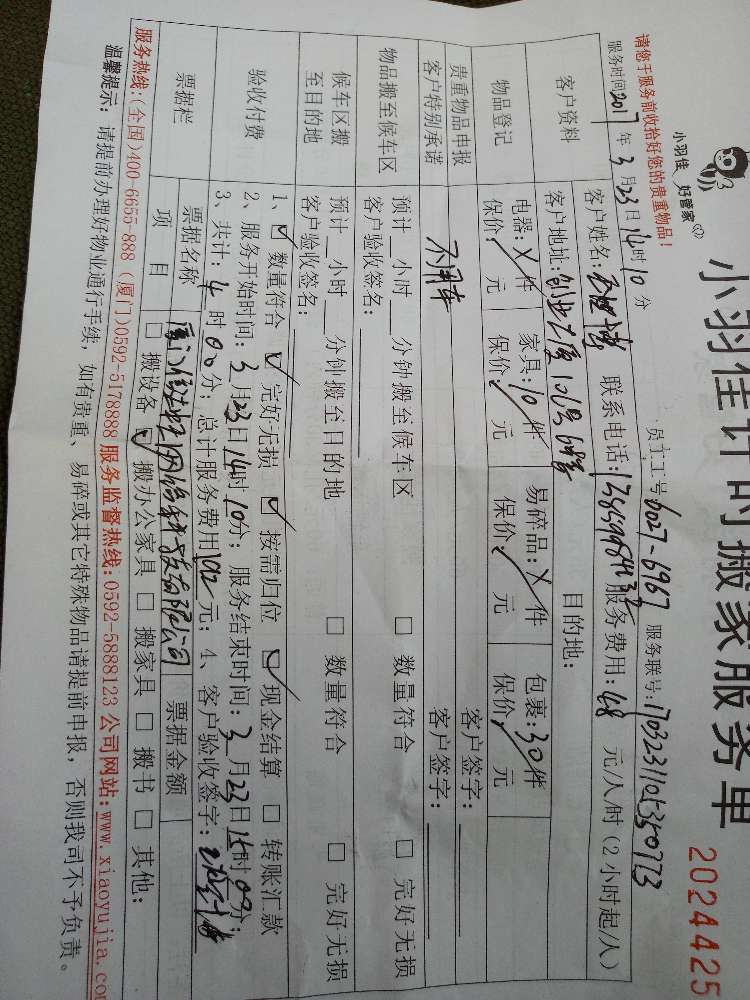 小羽佳 好管家
小羽佳计时搬家服务单
2024425
请您于服务前收拾好您的贵重物品!
员工工号6027-6967 服务联号:1703231105350773
服务时间2017年3月23日14时10分
客户资料
客户姓名: 联系电话: 服务费用:48 元/人/时(2小时起/人)
客户地址:创业大厦101号 目的地:
物品登记
电器:╱件 家具:10件 易碎品:╱件 包裹:30件
保价:╱元 保价╱元 保价╱元 保价╱元
贵重物品申报 客户签字:
客户特别承诺 不用车 客户签字:
物品搬至候车区
预计 小时 分钟搬至候车区 □ 数量符合 □ 完好无损
客户验收签名:
候车区搬至目的地
预计 小时 分钟搬至目的地 □ 数量符合 □ 完好无损
客户验收签名:
验收付费
1、☑ 数量符合 ☑ 完好无损 ☑ 按需归位 ☑ 现金结算 □ 转账汇款
2、服务开始时间:3月23日14时10分; 服务结束时间:3月23日15时00分;
3、共计:4时00分; 总计服务费用192元; 4、客户验收签字:
票据栏
票据名称 票据金额
项 目 □ 搬设备 ☑ 搬办公家具 □ 搬家具 □ 搬书 □ 其他:
服务热线:(全国)400-6655-888 (厦门)0592-5178888 服务监督热线:0592-5888123 公司网站:www.xiaoyujia.co
温馨提示: 请提前办理好物业通行手续, 如有贵重、易碎或其它特殊物品请提前申报, 否则我司不予负责。